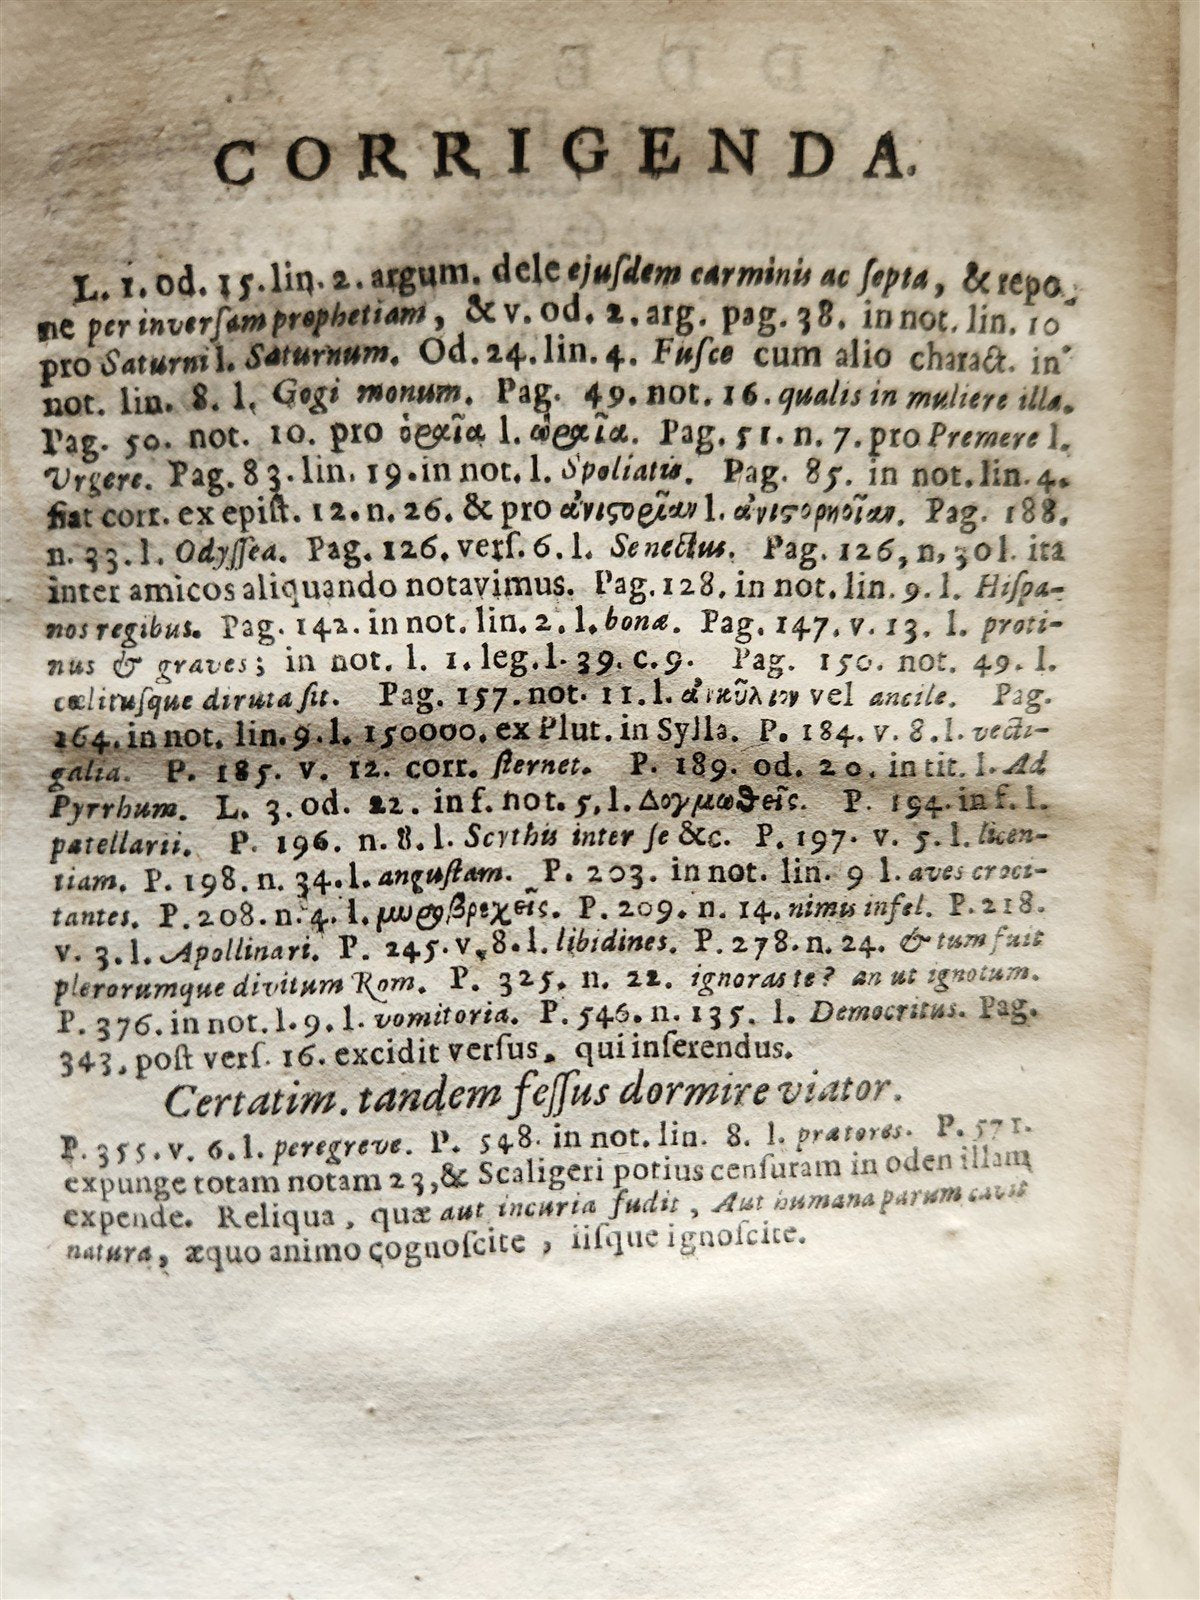 CORRIGENDA.
L. 1. od. 15. lin. 2. argum. dele ejuſdem carminis ac ſepta, & repo-
ne per inverſam prophetiam, & v. od. 2. arg. pag. 38. in not. lin. 10
pro Saturni l. Saturnum. Od. 24. lin. 4. Fuſce cum alio charact. in
not. lin. 8. l. Gogi monum. Pag. 49. not. 16. qualis in muliere illa.
Pag. 50. not. 10. pro ὁραῖα l. ὡραῖα. Pag. 51. n. 7. pro Premere l.
Urgere. Pag. 83. lin. 19. in not. l. Spoliatis. Pag. 85. in not. lin. 4.
fiat corr. ex epiſt. 12. n. 26. & pro l. Pag. 188.
n. 33. l. Odyſſea. Pag. 126. verſ. 6. l. Senectus. Pag. 126, n, 30 l. ita
inter amicos aliquando notavimus. Pag. 128. in not. lin. 9. l. Hiſpa-
nos regibus. Pag. 142. in not. lin. 2. l. bonæ. Pag. 147. v. 13. l. proti-
nus & graves; in not. l. 1. leg. l. 39. c. 9. Pag. 150. not. 49. l.
cœlituſque diruta ſit. Pag. 157. not. 11. l. vel ancile. Pag.
164. in not. lin. 9. l. 150000. ex Plut. in Sylla. P. 184. v. 8. l. vecti-
galia. P. 185. v. 12. corr. ſternet. P. 189. od. 20. in tit. l. Ad
Pyrrhum. L. 3. od. 22. in f. not. 5, l. Δογμωθεῖς. P. 194. in f. l.
patellarii. P. 196. n. 8. l. Scythis inter ſe &c. P. 197. v. 5. l. licen-
tiam. P. 198. n. 34. l. anguſtam. P. 203. in not. lin. 9 l. aves croci-
tantes. P. 208. n. 4. l. μυροβρεχεῖς. P. 209. n. 14. nimis infel. P. 218.
v. 3. l. Apollinari. P. 245. v. 8. l. libidines. P. 278. n. 24. & tum fuit
plerorumque divitum Rom. P. 325. n. 22. ignoras te? an ut ignotum.
P. 376. in not. l. 9. l. vomitoria. P. 546. n. 135. l. Democritus. Pag.
343. poſt verſ. 16. excidit verſus. qui inſerendus.
Certatim. tandem feſſus dormire viator.
P. 355. v. 6. l. peregreve. P. 548. in not. lin. 8. l. prætores. P. 571.
expunge totam notam 23, & Scaligeri potius cenſuram in oden illam
expende. Reliqua, quæ aut incuria fudit, Aut humana parum cavit
natura, æquo animo cognoſcite, iiſque ignoſcite.